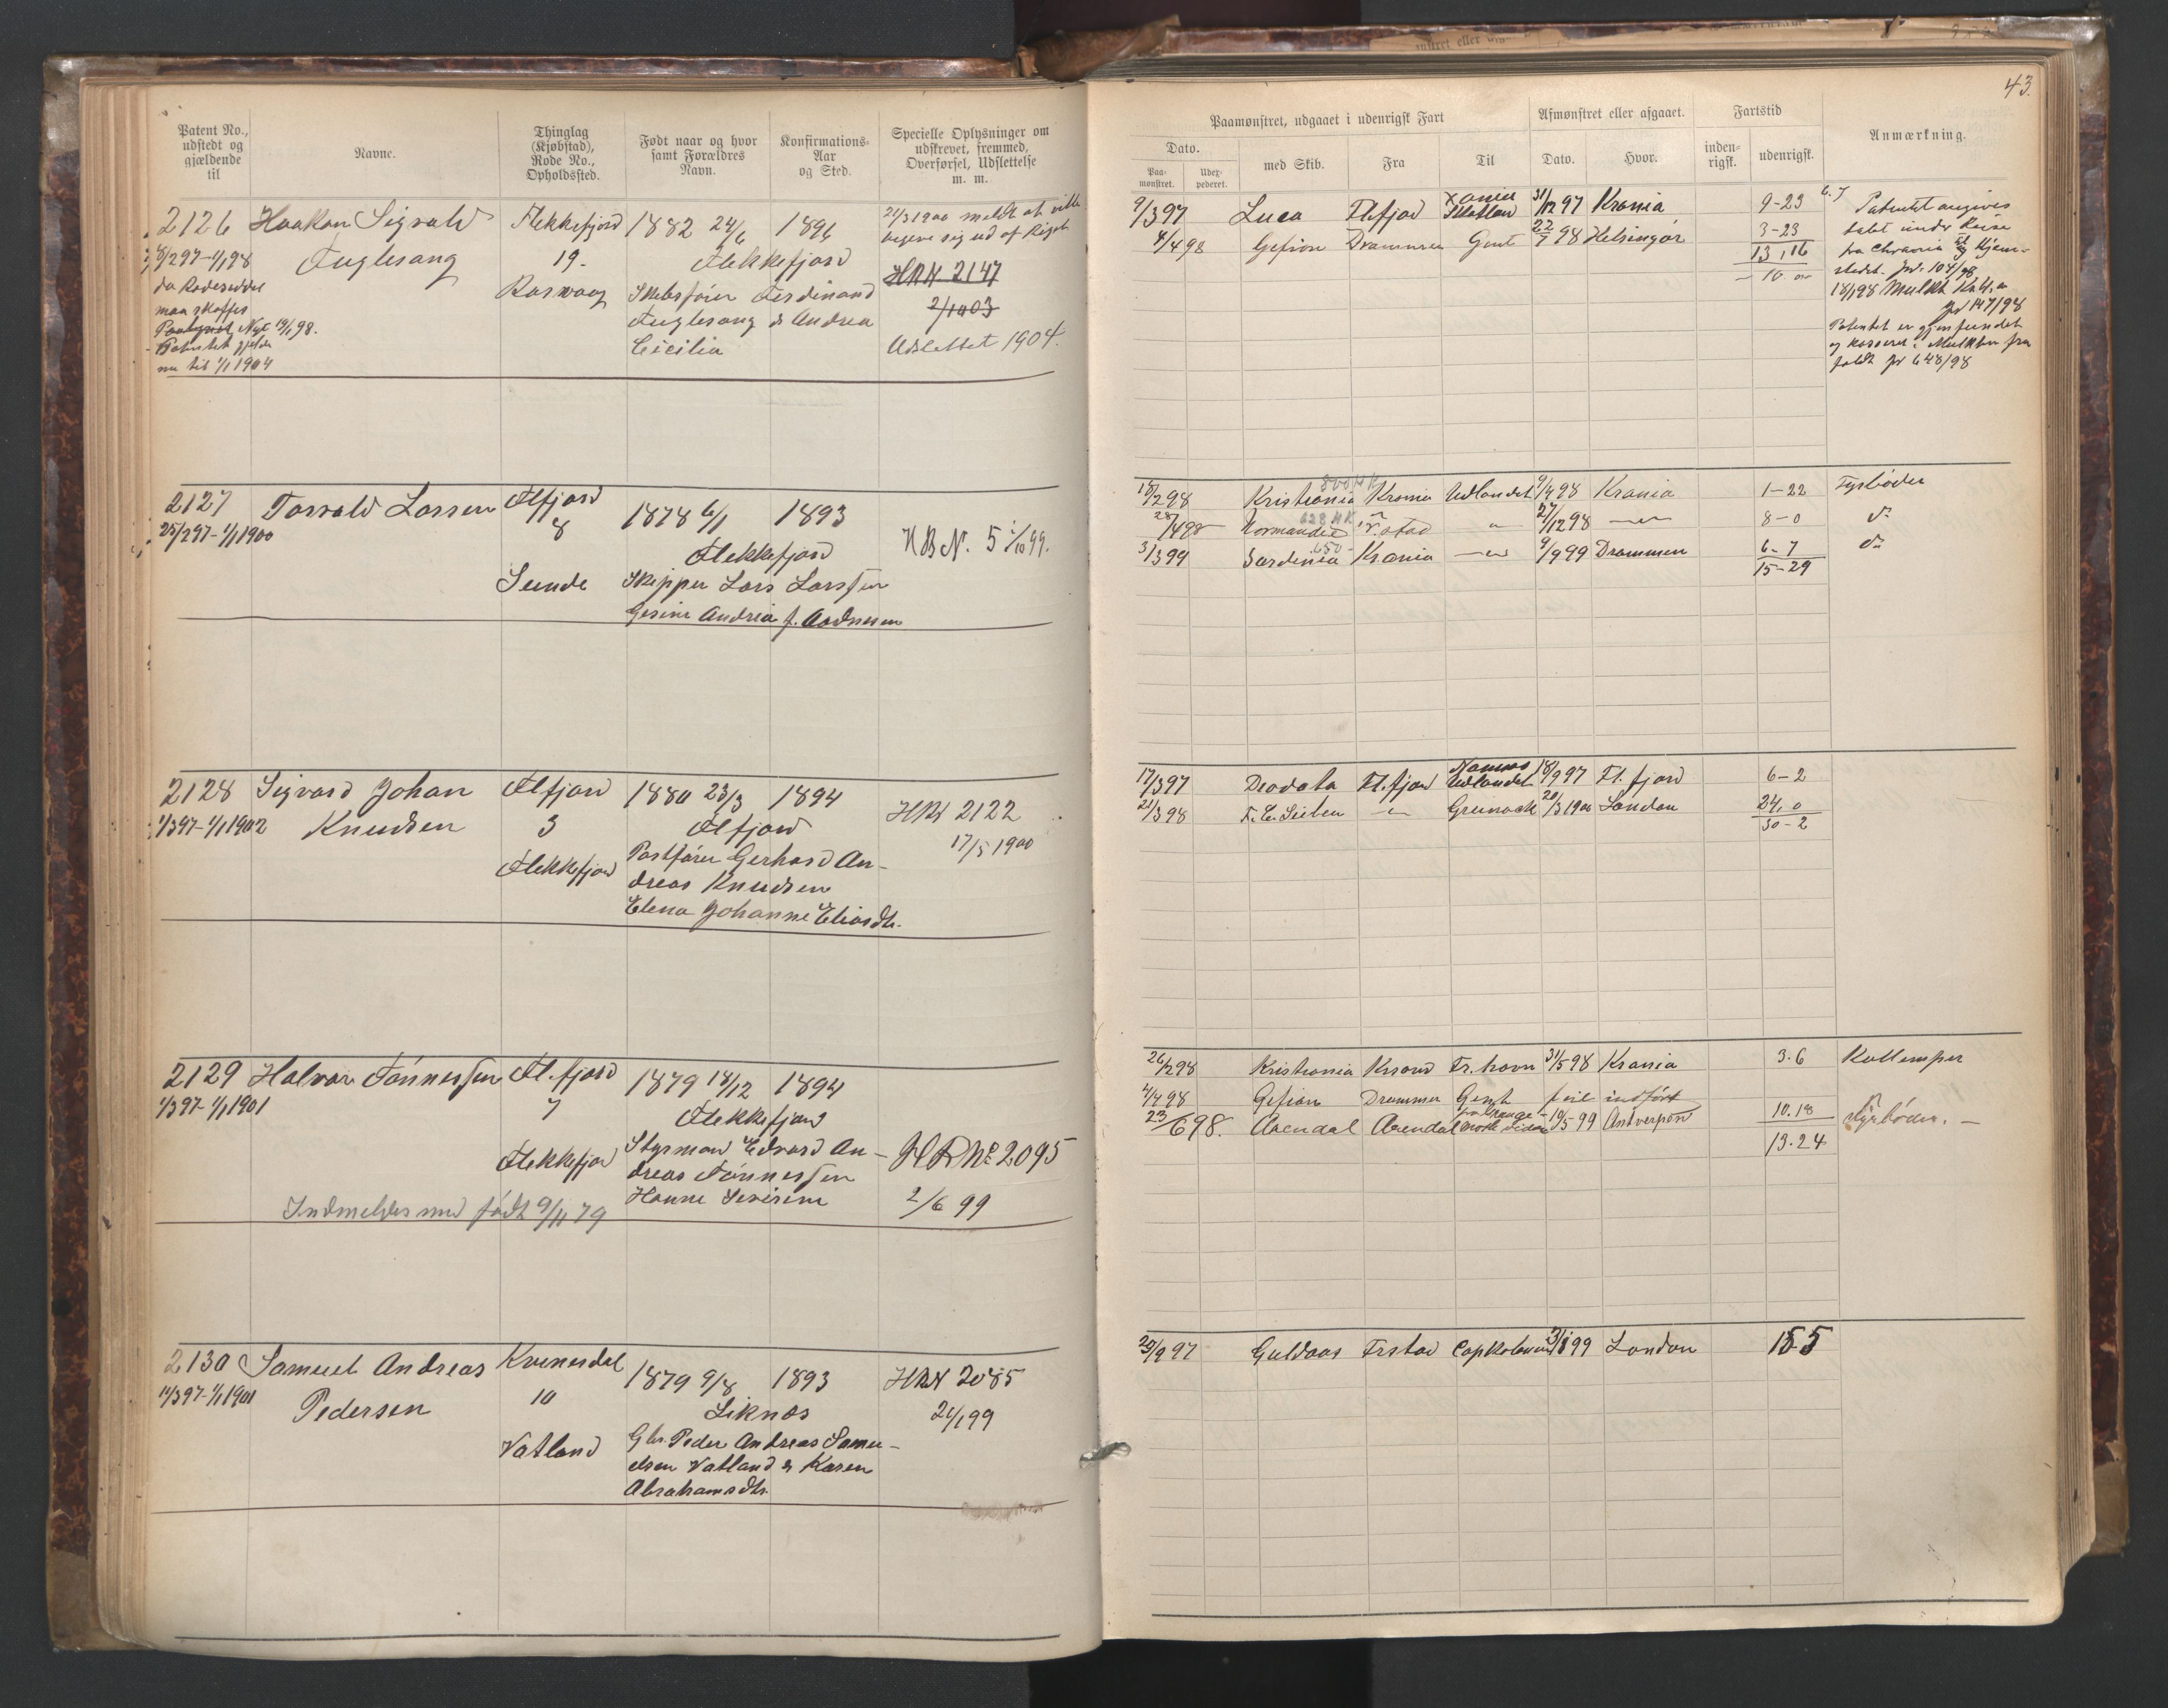 43.
Patent No.,
udstedt og
gjældende
til
Navne.
Thinglag
(Kjøbstad),
Rode No.,
Opholdssted.
Født naar og hvor
samt Forældres
Navn.
Konfirmations-
Aar
og Sted.
Specielle Oplysninger om
udskrevet, fremmed,
Overførsel, Udslettelse
m. m.
Paamønstret, udgaaet i udenrigsk Fart
Dato.
Paa-
mønstret.
Udex-
pederet.
med Skib.
Fra
Til
Afmønstret eller afgaaet.
Dato.
Hvor.
Fartstid
inden-
rigsk.
udenrigsk.
Anmærkning.
2126 Haakon Sigvald Flekkefjord 1882 24/6 1896
Fuglesang 19. Flekkefjord
Rasvaag
Skibsfører Ferdinand
Fuglesang & Andrea
Cecilie
6/2 97-1/1 98
da Rodeseddel
maa skaffes
Nyt 19/1 98.
Patentet gjelder
nu til 1/1 1904
21/3 1900 meldt at ville
begive sig ud af Riget
HRN 2147
2/1 03
Udslettet 1904.
9/3 97 Luca Flefjord 31/12 97 Krania 9-23
4/4 98 Gefion Drammen Gent 22/7 98 Helsingør 3-23
13,16
Patentet angives
tabt under Reise
fra Chrania til Hjem-
stedet. Jr. 104/98
18/1 98 Mulkt
Jr 147/98
Patentet er gjenfundet
og kasseret. Mulkten fra
faldt Jr 648/98
2127 Torvald Larsen Flfjord 1878 6/1 1893
25/2 97-1/1 1900
8
Flekkefjord
Sunde Skipper Lars Larssen
Gesine Andrea f. Aadnesen
HBN. 5 1/10 99.
18/2 98 Kristiania Krania Udlandet 9/4 98 Krania 1-22 Fyrbøder
28/4 98 Normandie 628 HK F.stad " 27/12 98 —"— 8-0 do
3/3 99 Sardinia 650 Krania —"— 9/9 99 Drammen 6-7 do
15-29
2128 Sigvard Johan Flfjord 1880 23/3 1894
1/3 97-1/1 1902 Knudsen 3 Flfjord
Flekkefjord Postfører Gerhard An-
dreas Knudsen
Elena Johanne Eliasdtr.
HRN 2122
17/5 1900
17/3 97 Deodata Fl.fjord Udlandet 18/9 97 Fl.fjord 6-2
21/3 98 —"— Greenock 20/3 1900 London 24,0
30-2
2129 Halvar Tønnessen Fl.fjord 1879 18/12 1894
1/3 97-1/1 1901 7 Flekkefjord
Flekkefjord Styrmand Edvard An-
dreas Tønnessen
Hanne Severine
HRNo 2095
2/6 99
Indmeldes med født 9/11 79
26/2 98 Kristiania Krsand Fr.havn 31/5 98 Krania 3.6 Kullemper
4/4 98 Gefion Drammen Gent feil indført
23/6 98. Arendal Arendal 10/5 99 Antverpen 10.18 Fyrbøder. —
13.24
2130 Samuel Andreas Kvinesdal 1879 9/8 1893
11/3 97-1/1 1901 Pedersen 10 Liknes
Vatland Gbr. Peder Andreas Samu-
elsen Vatland & Karen
Abrahamsdtr.
HRN 2085
21/1 99
20/9 97 Guldaas Frstad 3/1 99 London 15 5